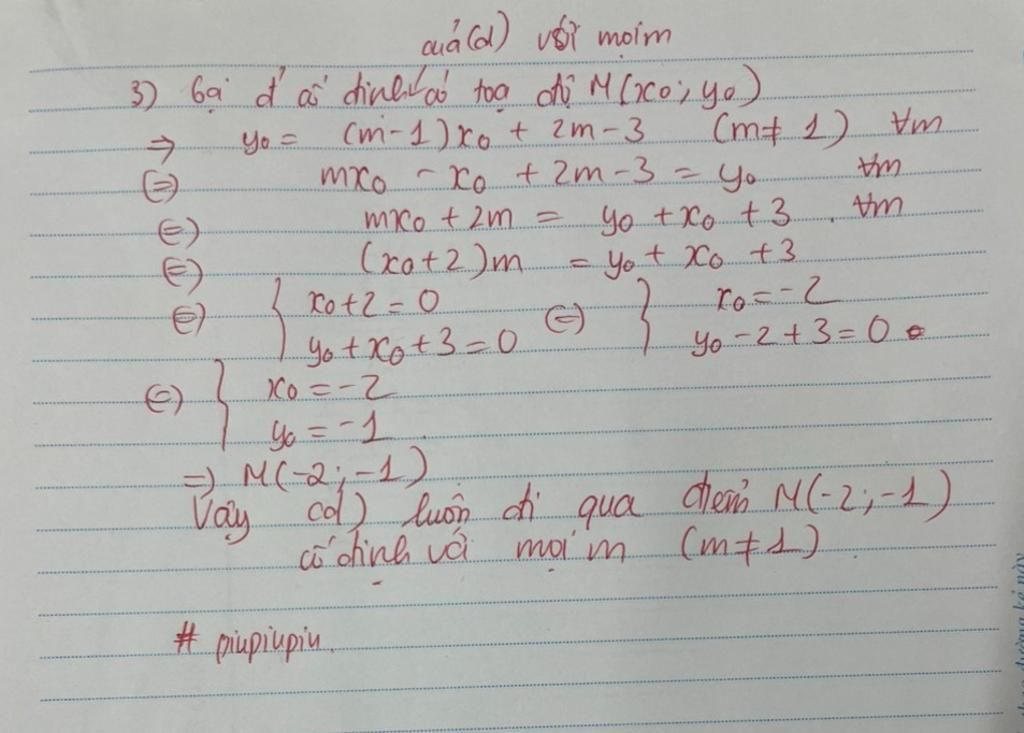 của (d) với mọi m
3) Gọi đ' cố định có toạ độ M(x₀; y₀)
⇒ y₀ = (m-1)x₀ + 2m-3 (m≠1) ∀m
(=) mx₀ - x₀ + 2m-3 = y₀ ∀m
(=) mx₀ + 2m = y₀ + x₀ + 3 . ∀m
(=) (x₀+2)m = y₀ + x₀ + 3
(=) { x₀+2=0 (=) { x₀=-2
y₀+x₀+3=0 y₀-2+3=0
(=) { x₀=-2
y₀=-1
=) M(-2; -1)
Vậy (d) luôn đi qua điểm M(-2; -1)
cố định với mọi m (m≠1)
# piupiupiu.